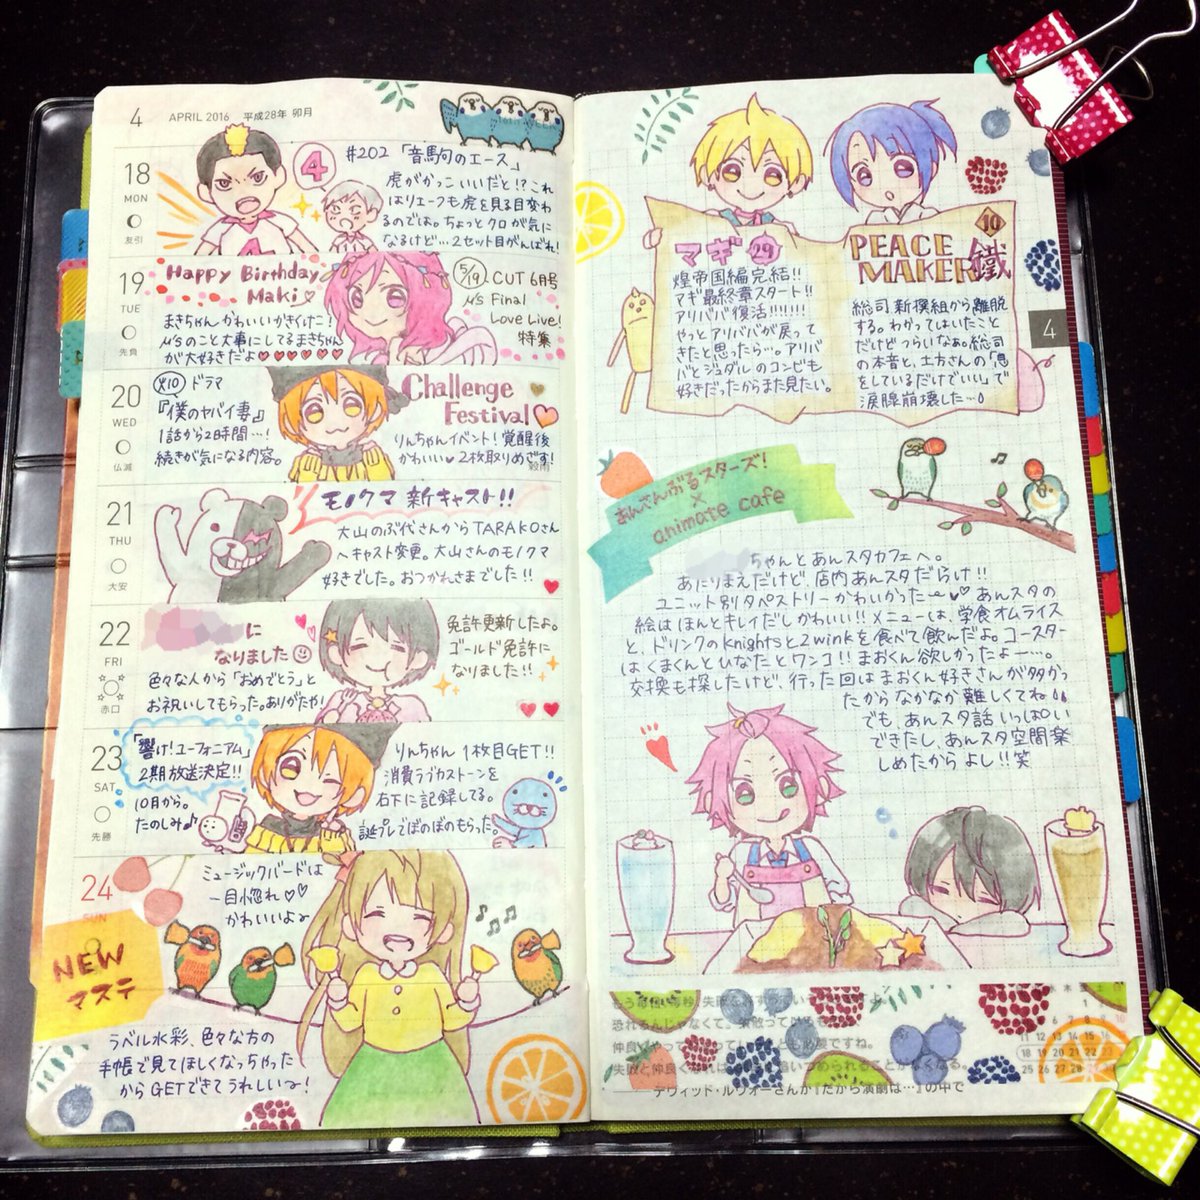 4 APRIL 2016 平成28年 卯月
18
MON
友引
④ #202 「音駒のエース」
虎がかっこいいだと!?これ
はリエーフも虎を見る目変わ
るのでは。ちょっとクロが気に
なるけど…2セット目がんばれ!
19
TUE
先負
Happy Birthday
Maki♡
まきちゃんかわいいかきくけこ!
μ'sのこと大事にしてるまきちゃん
が大好きだよ♥♥♥♥♥♥
5/19. CUT 6月号
μ's Final
Love Live!
特集
20
WED
仏滅
火10 ドラマ
『僕のヤバイ妻』
1話から2時間…!
続きが気になる内容。
Challenge
Festival
りんちゃんイベント!覚醒後
かわいい♥2枚取りめざす!
穀雨
21
THU
大安
モノクマ 新キャスト!!
大山のぶ代さんからTARAKOさん
へキャスト変更。大山さんのモノクマ
好きでした。おつかれさまでした!!
22
FRI
赤口
に
なりました
色々な人から「おめでとう」と
お祝いしてもらった。ありがたや!
免許更新したよ。
ゴールド免許に
なりました!!
23
SAT
先勝
「響け!ユーフォニアム」
2期放送決定!!
10月から。
たのしみ♪
りんちゃん 1枚目GET!!
消費ラブカストーンを
右下に記録してる。
誕プレでぼのぼのもらった。
24
SUN
ミュージックバードは
一目惚れ♡♡
かわいいよ~
NEW
マステ
ラベル水彩、色々な方の
手帳で見てほしくなっちゃった
からGETできてうれしい~!
マギ 29
煌帝国編完結!!
マギ最終章スタート!!
アリババ復活!!!!!!!
やっとアリババが戻って
きたと思ったら…。アリババ
とジュダルのコンビも
好きだったからまた見たい。
PEACE
MAKER 鐵 10
総司新撰組から離脱
する。わかってはいたこと
だけどつらいなぁ。総司
の本音と、土方さんの「息
をしているだけでいい」で
涙腺崩壊した…
4
あんさんぶるスターズ!
×
animate cafe
ちゃんとあんスタカフェへ。
あたりまえだけど、店内あんスタだらけ!!
ユニット別タペストリーかわいかった~♥♡ あんスタの
絵はほんとキレイだしかわいい!!メニューは、学食オムライス
と、ドリンクのKnightsと2winkを食べて飲んだよ。コースター
はくまくんとひなたとワンコ!!まおくん欲しかったよー…。
交換も探したけど、行った回はまおくん好きさんが多かっ
たからなかなか難しくてね
でも、あんスタ話いっぱい
できたし、あんスタ空間楽
しめたからよし!!笑
木 金 土 日
1
11 12 13 14 15 16
18 19 20 21 22 23
25 26 27 28
デヴィッド・ルヴォーさんが『だから演劇は…』の中で